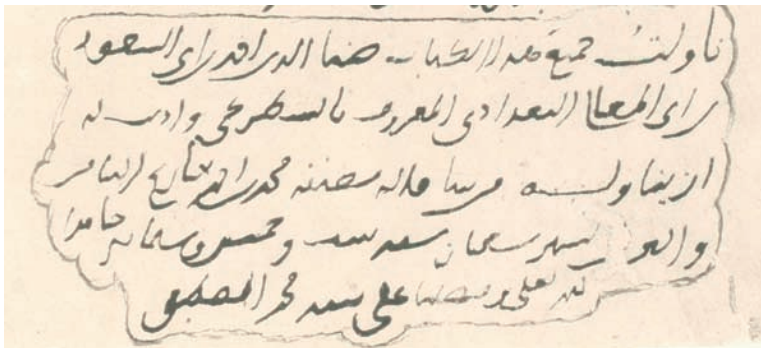 ناولت جميع هذا الكتاب ضيا الدين ابي السعود
بن ابي المعالي البغدادي المعروف بالسطرنجي واذنت له
ان يناوله من شا قاله مصنفه محمد بن بتاريخ الثامن
شعبان سنة وخمسين وستمائة حامدا
لله تعالى ومصليا على محمد المصطفى